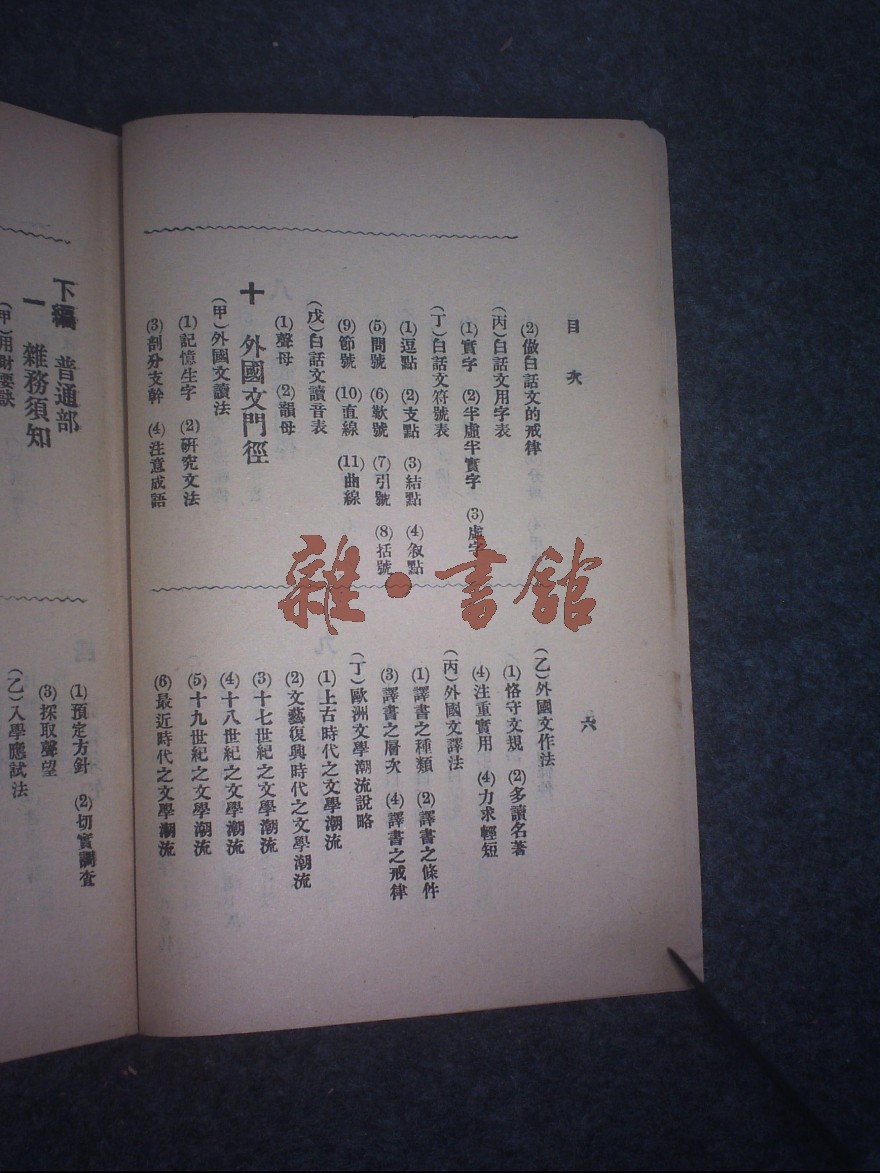 目次
六
(2)做白話文的戒律
(丙)白話文用字表
(1)實字 (2)半虛半實字 (3)虛字
(丁)白話文符號表
(1)逗點 (2)支點 (3)結點 (4)敘點
(5)問號 (6)歎號 (7)引號 (8)括號
(9)節號 (10)直線 (11)曲線
(戊)白話文讀音表
(1)聲母 (2)韻母
十 外國文門徑
(甲)外國文讀法
(1)記憶生字 (2)研究文法
(3)剖分支幹 (4)注意成語
(乙)外國文作法
(1)恪守文規 (2)多讀名著
(4)注重實用 (4)力求輕短
(丙)外國文譯法
(1)譯書之種類 (2)譯書之條件
(3)譯書之層次 (4)譯書之戒律
(丁)歐洲文學潮流說略
(1)上古時代之文學潮流
(2)文藝復興時代之文學潮流
(3)十七世紀之文學潮流
(4)十八世紀之文學潮流
(5)十九世紀之文學潮流
(6)最近時代之文學潮流
下編 普通部
一 雜務須知
(甲)用財要訣
(1)預定方針 (2)切實調查
(3)採取聲望
(乙)入學應試法
雜·書館